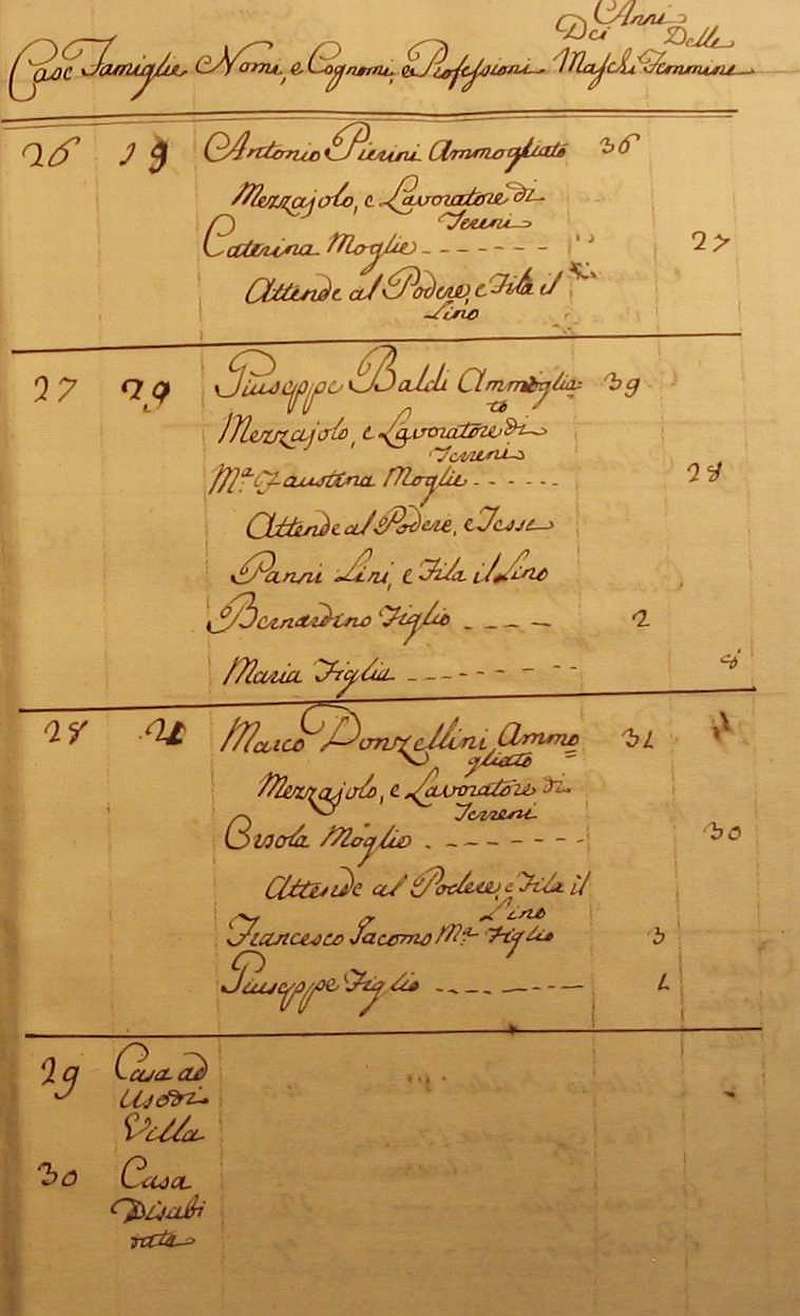 Anni
Dei Delle
Case Famiglie Nomi, e Cognomi, e Professioni Maschi Femmine
26 19 Antonio Pierini Ammogliato 36
Mezzajolo, e Lavoratore di
Terreni
Caterina Moglie - - - - - - - 27
Attende al Podere, e Fila il
Lino
27 20 Giuseppe Baldi Ammoglia= 39
to
Mezzajolo, e Lavoratore di
Terreni
Mª Faustina Moglie - - - - - - 28
Attende al Podere, e Tesse
Panni Lini, e Fila il Lino
Bernardino Figlio - - - - 2
Maria Figlia - - - - - - - -
28 21 Marco Donzellini Ammo 31
gliato =
Mezzajolo, e Lavoratore di
Terreni
Orsola Moglie - - - - - - - - 30
Attende al Podere, e Fila il
Lino
Francesco Giacomo Mª Figlio 3
Giuseppe Figlio - - - - - - - - 1
29 Casa ad
uso di
Villa
30 Casa
Disabi
tata